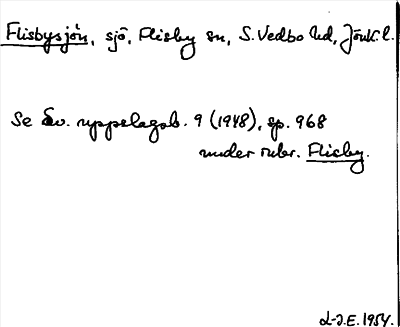 Flisbysjön, sjö, Flisby sn, S. Vedbo hd, Jönk. l.
Se Sv. uppslagsb. 9 (1948), sp. 968
under rubr. Flisby.
L-J.E. 1954.